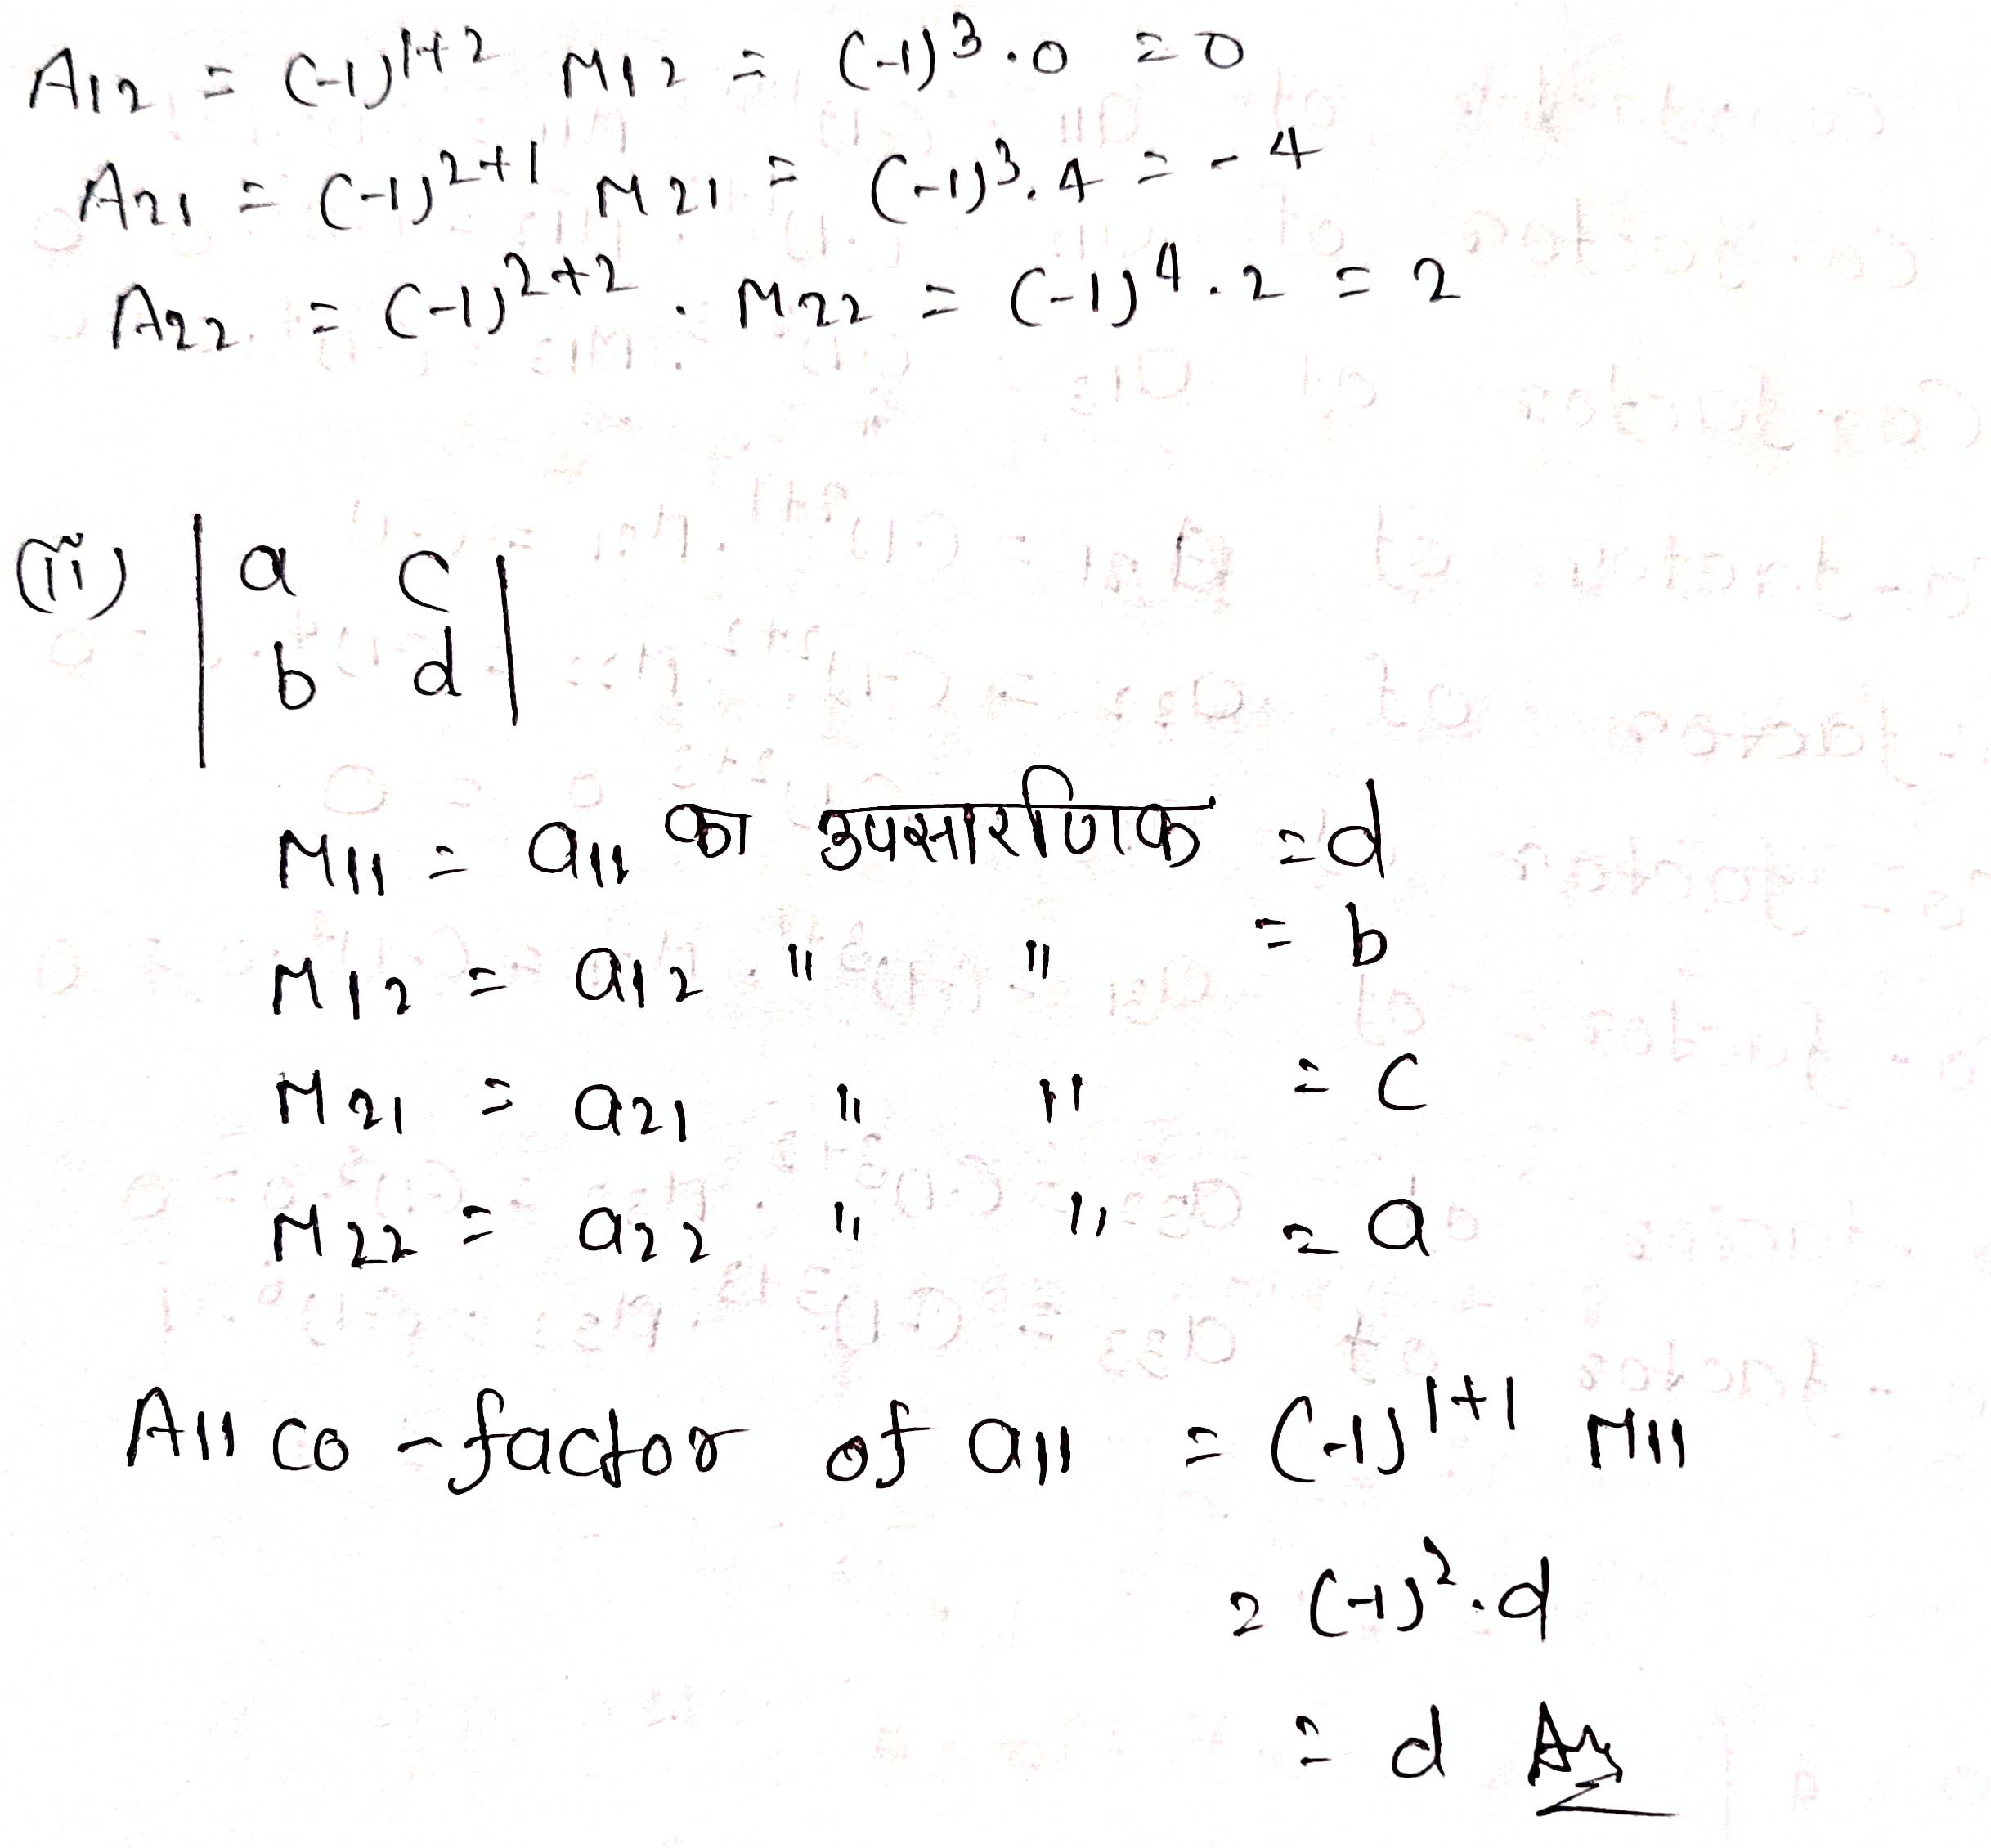 A12 = (-1)^1+2 M12 = (-1)^3 . 0 = 0
A21 = (-1)^2+1 M21 = (-1)^3 . 4 = - 4
A22 = (-1)^2+2 . M22 = (-1)^4 . 2 = 2
(ii) | a c |
| b d |
M11 = a11 का उपसारणिक = d
M12 = a12 " " = b
M21 = a21 " " = c
M22 = a22 " " = a
A11 co-factor of a11 = (-1)^1+1 M11
= (-1)^2 . d
= d Ans